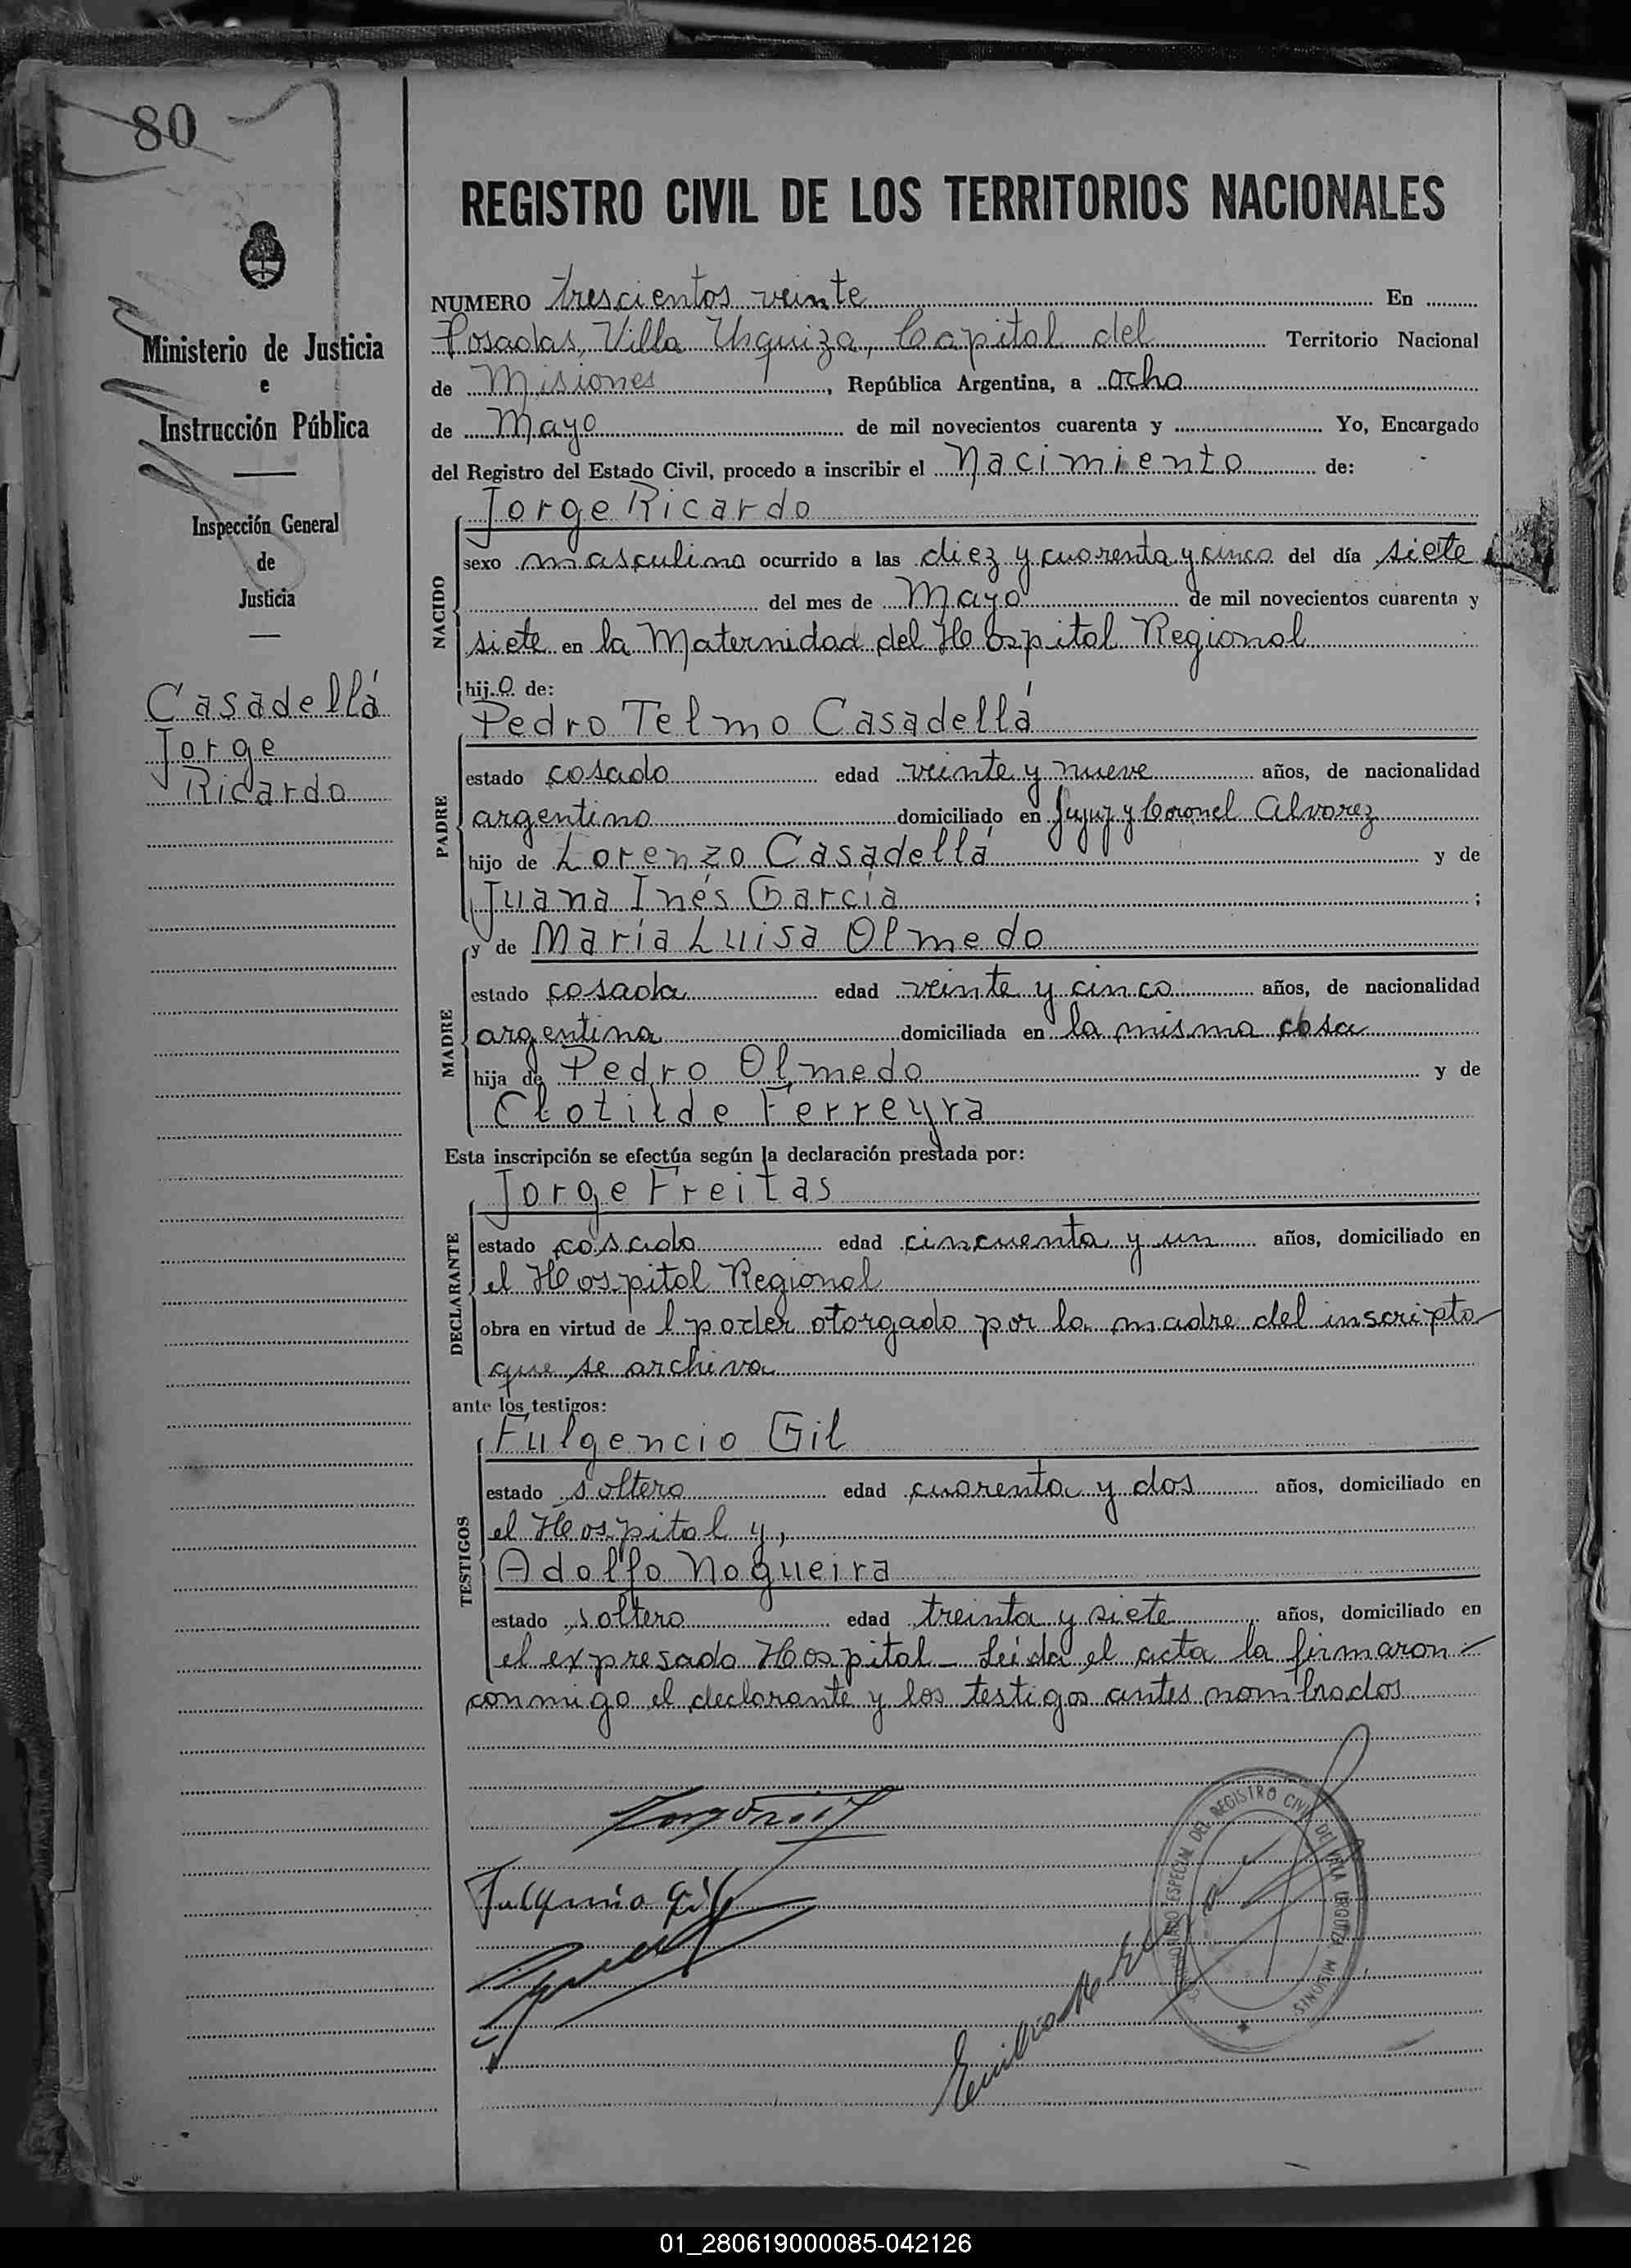 80
REGISTRO CIVIL DE LOS TERRITORIOS NACIONALES
Ministerio de Justicia
e
Instrucción Pública
Inspección General
de
Justicia
Casadellá
Jorge
Ricardo
NUMERO trescientos veinte En
Posadas, Villa Urquiza, Capital del Territorio Nacional
de Misiones, República Argentina, a ocho
de Mayo de mil novecientos cuarenta y Yo, Encargado
del Registro del Estado Civil, procedo a inscribir el Nacimiento de:
Jorge Ricardo
NACIDO
sexo masculino ocurrido a las diez y cuarenta y cinco del día siete
del mes de Mayo de mil novecientos cuarenta y
siete en la Maternidad del Hospital Regional
hijo de:
Pedro Telmo Casadellá
PADRE
estado casado edad veinte y nueve años, de nacionalidad
argentino domiciliado en Jujuy y Coronel Alvarez
hijo de Lorenzo Casadellá y de
Juana Inés García ;
y de María Luisa Olmedo
MADRE
estado casada edad veinte y cinco años, de nacionalidad
argentina domiciliada en la misma casa
hija de Pedro Olmedo y de
Clotilde Ferreyra
Esta inscripción se efectúa según la declaración prestada por:
Jorge Freitas
DECLARANTE
estado casado edad cincuenta y un años, domiciliado en
el Hospital Regional
obra en virtud de l poder otorgado por la madre del inscripto
que se archiva
ante los testigos:
Fulgencio Gil
TESTIGOS
estado soltero edad cuarenta y dos años, domiciliado en
el Hospital y,
Adolfo Nogueira
estado soltero edad treinta y siete años, domiciliado en
el expresado Hospital - Leída el acta la firmaron
conmigo el declarante y los testigos antes nombrados
Fulgencio Gil
ESPECIAL DEL REGISTRO CIVIL DE VILLA URQUIZA MISIONES
Emilio
01_280619000085-042126